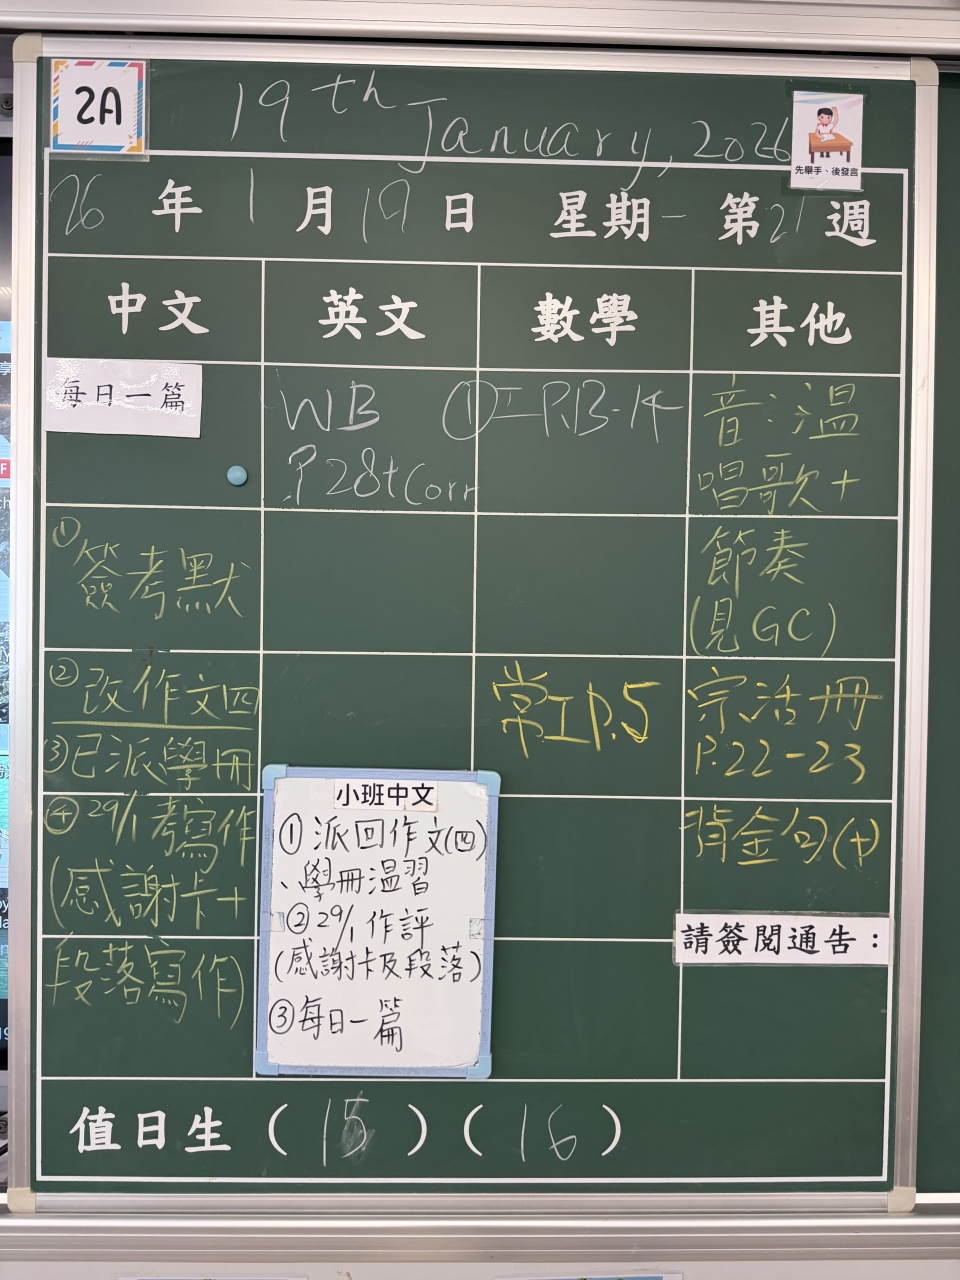 2A
19th January, 2026
先舉手、後發言
26年1月19日 星期一 第21週
中文 英文 數學 其他
每日一篇
①簽考默
②改作文四
③已派學冊
④29/1考寫作
(感謝卡+
段落寫作)
WB
P.28+Corr
①工P.13-14
常工P.5
音:溫
唱歌+
節奏
(見GC)
宗活冊
P.22-23
背金句(十)
請簽閱通告:
小班中文
①派回作文(四)
、學冊溫習
②29/1作評
(感謝卡及段落)
③每日一篇
值日生(15)(16)